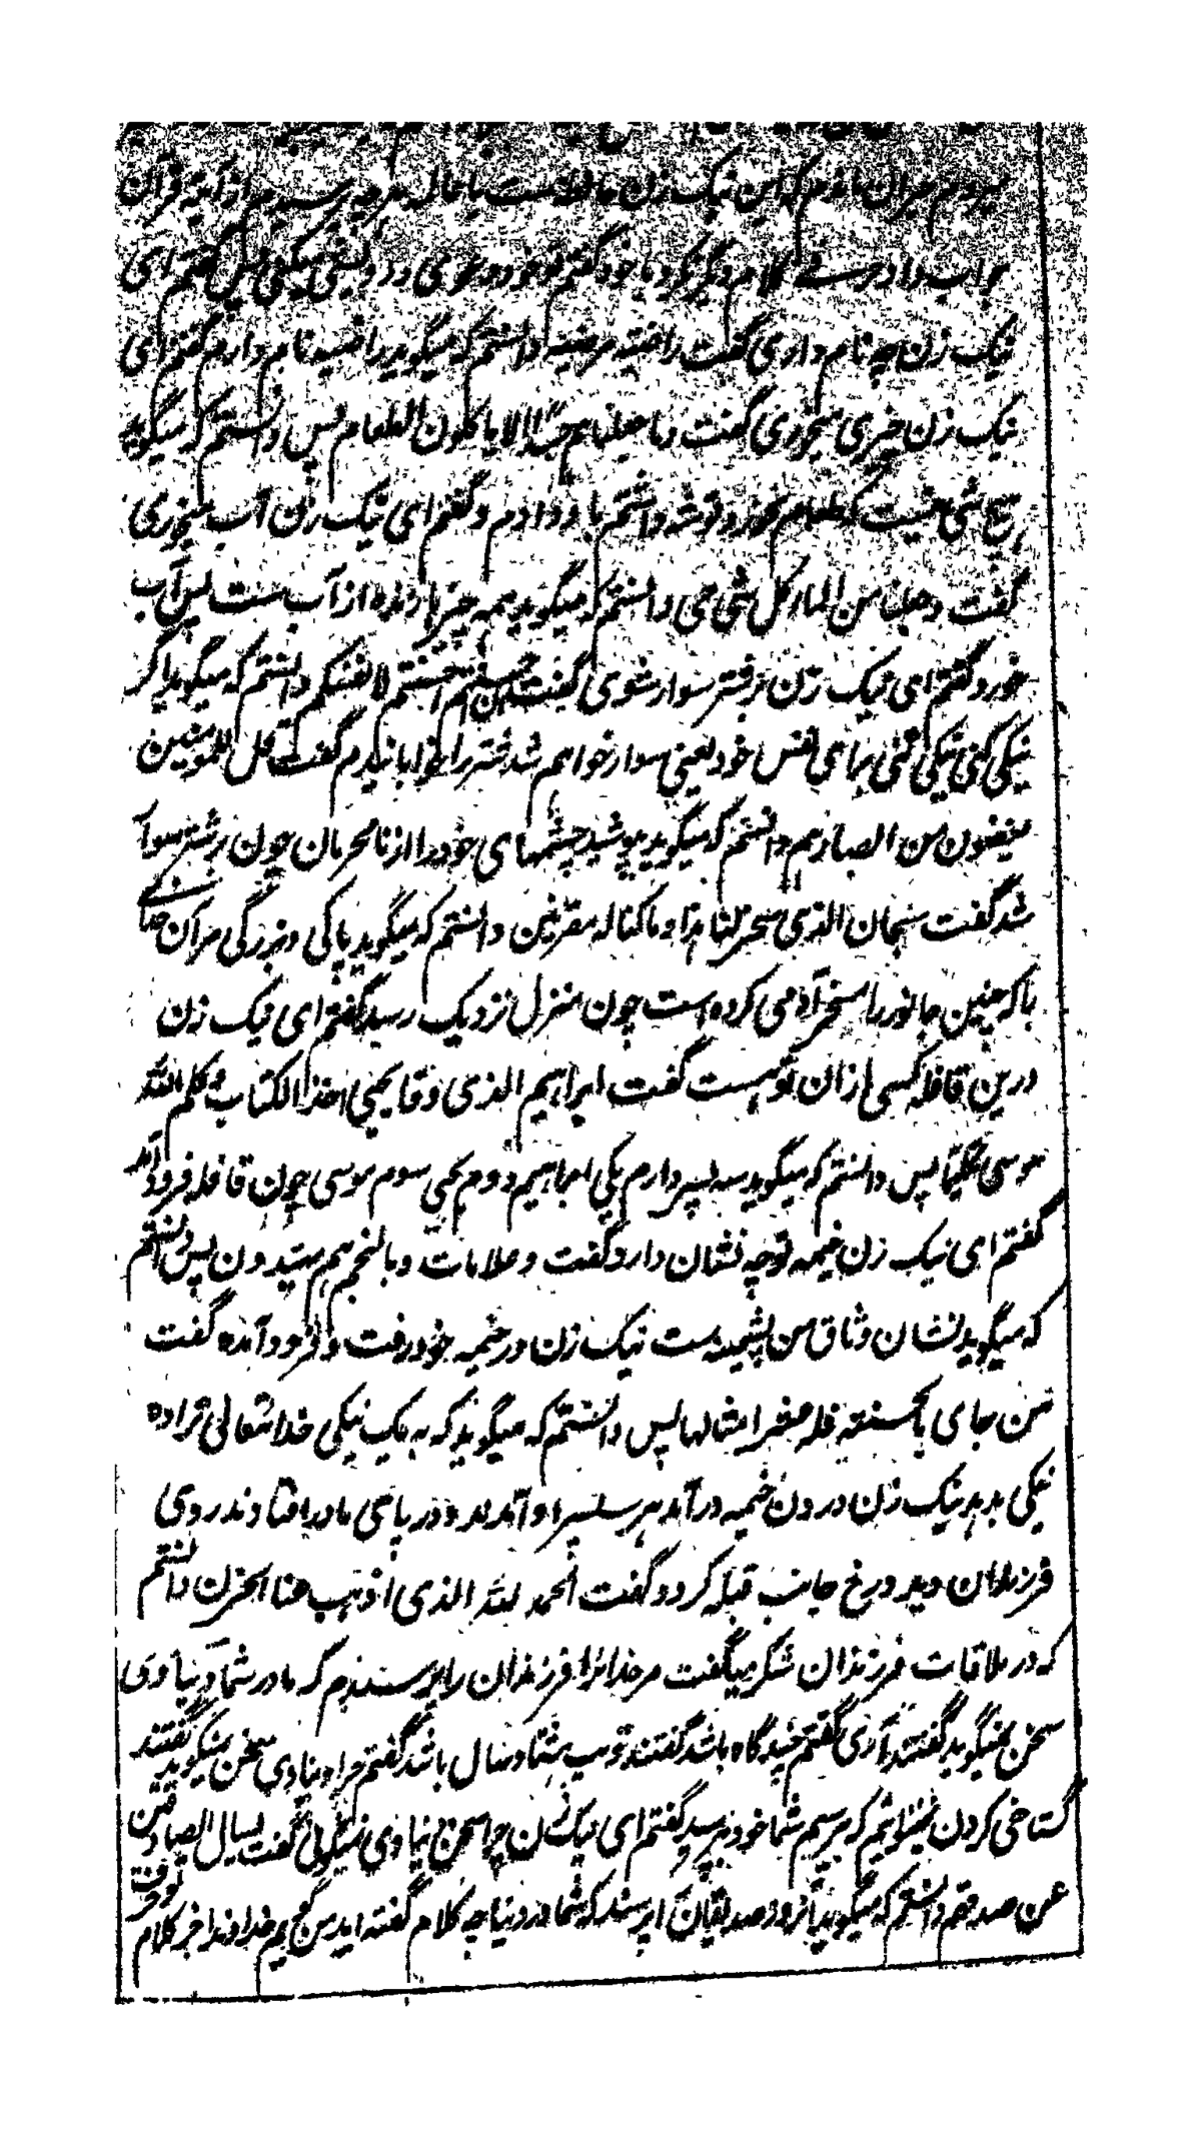 میروم حیران ماندم که این نیک زن با حال هر چه پرسیدم از آیت قرآن
جواب داد در سخن کلام دیگر نکرد با خود گفتم تو خود دعوی درویشی میکنی پس گفتم ای
نیک زن چه نام داری گفت راضیة مرضیة دانستم که میگوید راضیه نام دارم گفتم ای
نیک زن چیزی میخوری گفت وما جعلناهم جسدا لا یاکلون الطعام پس دانستم که میگوید
هیچ شی نیست که طعام نخورد توشه داشتم باو دادم و گفتم ای نیک زن آب میخوری
گفت وجعلنا من الماء کل شی حی دانستم که میگوید همه چیزها زنده از آب ست پس آب
خورد گفتم ای نیک زن برشتر سوار شوی گفت ان احسنتم احسنتم لانفسکم دانستم که میگوید اگر
نیکی کنی نیکی کنی برای نفس خود یعنی سوار خواهم شد شتر را خوابانیدم گفت قل للمومنین
یغضون من ابصارهم دانستم که میگوید بپوشید چشمهای خود را از نامحرمان چون برشتر سوار
شد گفت سبحان الذی سخر لنا هذا وما کنا له مقرنین دانستم که میگوید پاکی و بزرگی مر آن خدای
را که چنین جانور را مسخر آدمی کرده است چون منزل نزدیک رسید گفتم ای نیک زن
درین قافله کسی ازان تو هست گفت ابراهیم الذی وفا یحیی خذ الکتاب و کلم الله
موسی تکلیما پس دانستم که میگوید سه پسر دارم یکی ابراهیم دوم یحیی سوم موسی چون قافله فرود آمد
گفتم ای نیک زن خیمه تو چه نشان دارد گفت وعلامات وبالنجم هم یهتدون پس دانستم
که میگوید نشان وثاق من پشمینه ست نیک زن در خیمه خود رفت و فرود آمده گفت
من جای بالحسنة فله عشر امثالها پس دانستم که میگوید که به یک نیکی خدا تعالی ترا ده
نیکی بدهد نیک زن درون خیمه در آمد هر سه پسر او آمدند و در پای مادر افتادند روی
فرزندان دید و رخ جانب قبله کرد و گفت الحمد لله الذی اذهب عنا الحزن دانستم
که در ملاقات فرزندان شکر میگفت مر خدا را فرزندان را پرسیدم که مادر شما دنیاوی
سخن نمیگوید گفتند آری گفتم چندگاه باشد گفتند قریب هشتاد سال باشد گفتم چرا دنیاوی سخن نمیگوید گفتند
گستاخی کردن نمیتوانیم که پرسیم شما خود بپرسید گفتم ای نیک زن چرا سخن دنیاوی نمیگوئی گفت لیسال الصادقین
عن صدقهم دانستم که میگوید فردا صدیقان را پرسند که شما در دنیا چه کلام گفته اید من گویم خداوندا جز کلام تو حرف